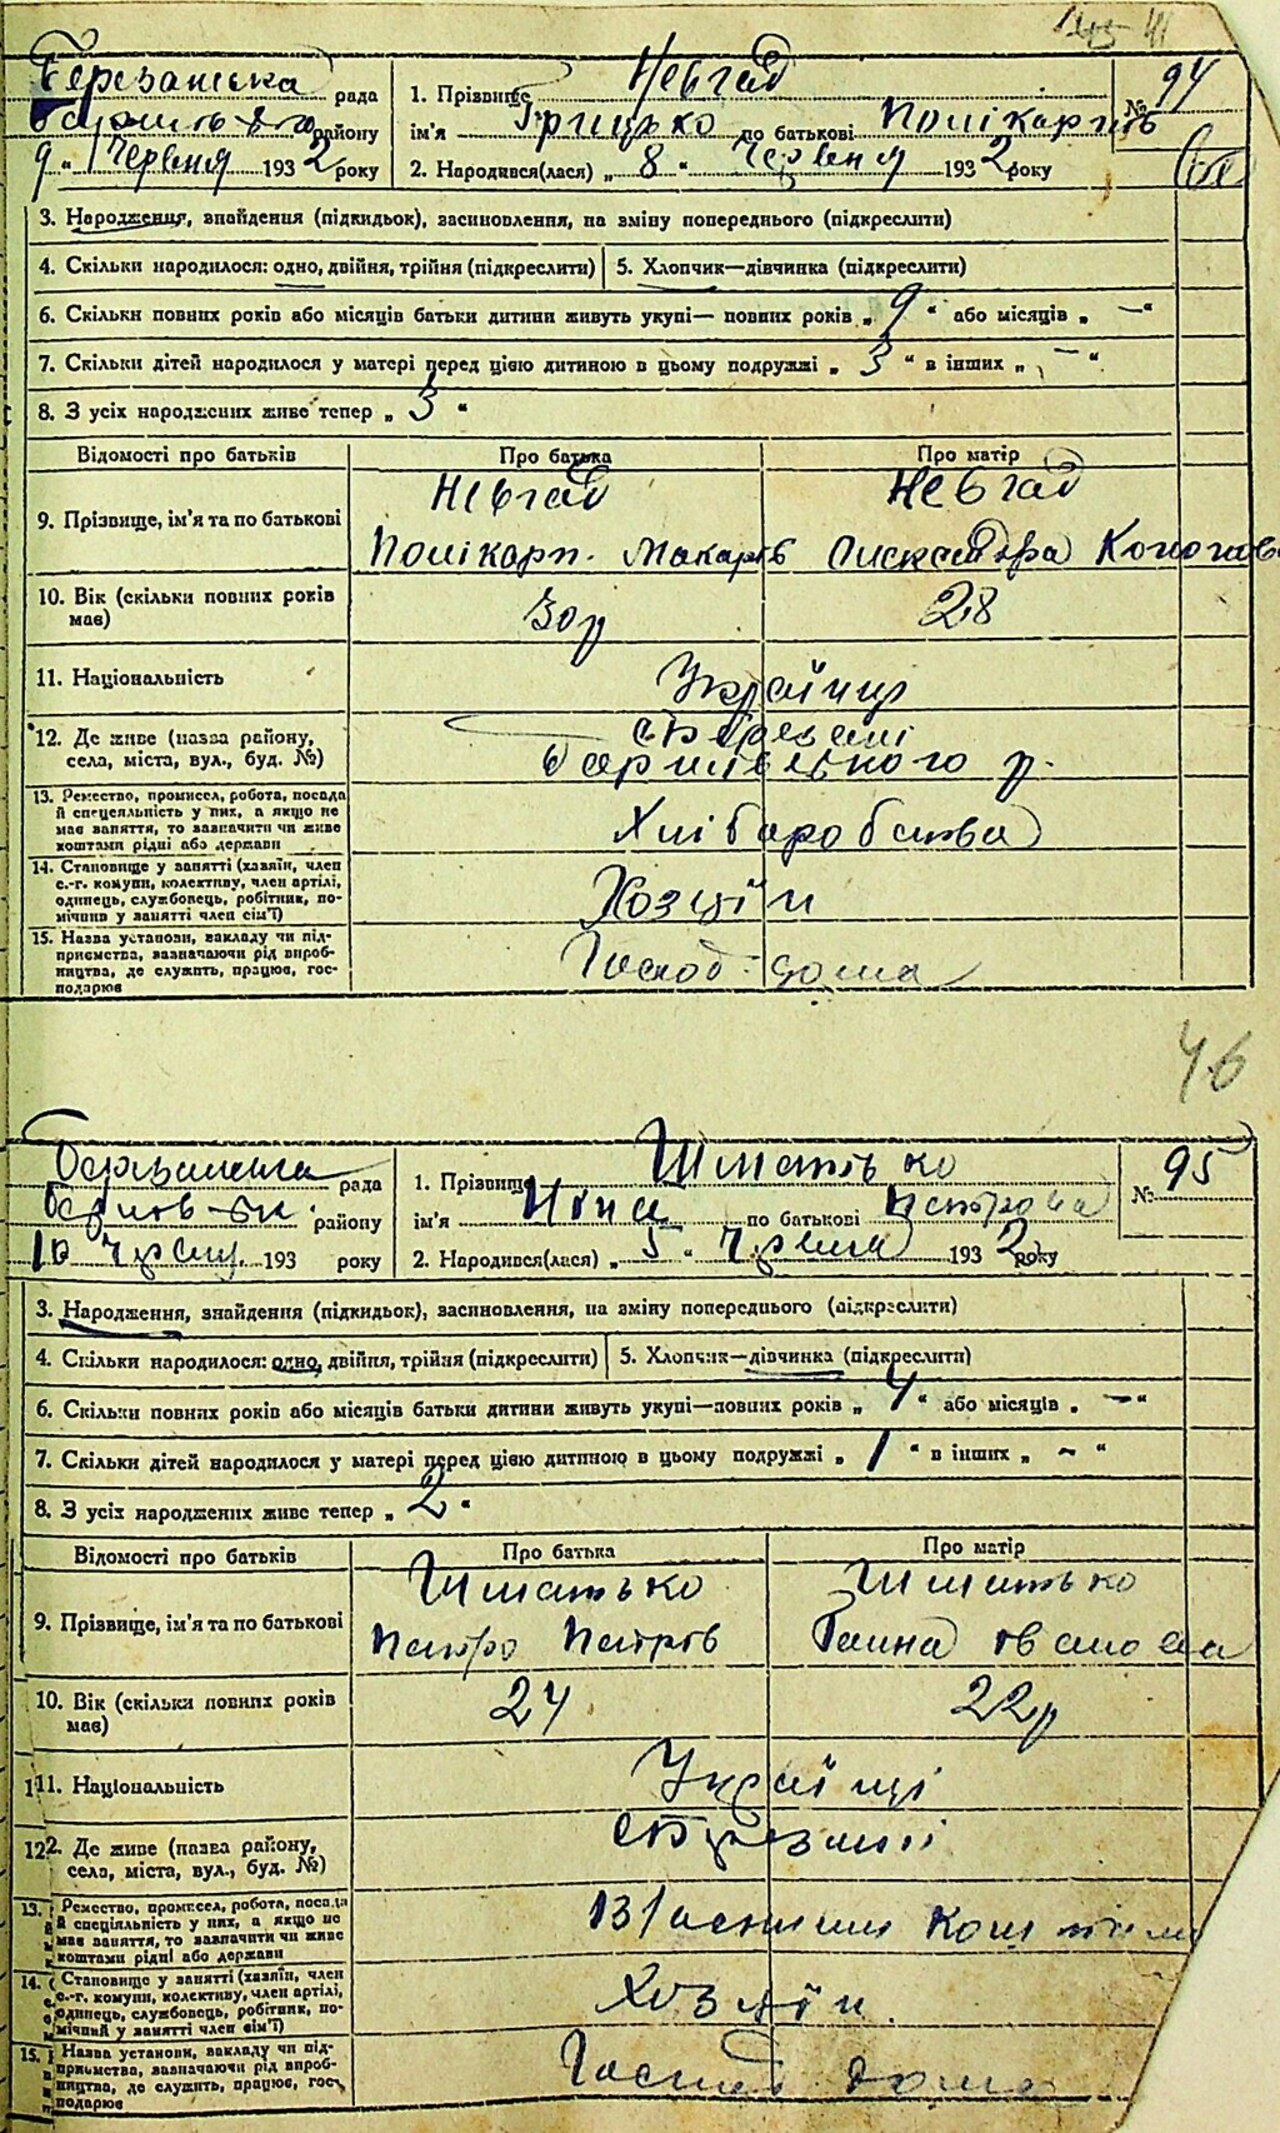 Березанська рада
району
9 " Червня 1932 року
1. Прізвище Невгад
ім'я Грицько по батькові Полікарпів
2. Народився(лася) „ 8 " Червня 1932 року
№ 94
3. Народження, знайдення (підкидьок), засиновлення, на зміну попереднього (підкреслити)
4. Скільки народилося: одно, двійня, трійня (підкреслити) 5. Хлопчик—дівчинка (підкреслити)
6. Скільки повних років або місяців батьки дитини живуть укупі— повних років „ 9 " або місяців „ — "
7. Скільки дітей народилося у матері перед цією дитиною в цьому подружжі „ 3 " в інших „ — "
8. З усіх народжених живе тепер „ 3 "
Відомості про батьків Про батька Про матір
Невгад Невгад
9. Прізвище, ім'я та по батькові
Полікарп. Макарів Олександра
10. Вік (скільки повних років має) 30 р 28
11. Національність Українці
12. Де живе (назва району, села, міста, вул., буд. №)
с Березані
Баришівського р.
13. Ремество, промисел, робота, посада й спеціяльність у них, а якщо не має заняття, то зазначити чи живе коштами рідні або держави
Хліборобства
14. Становище у занятті (хазяїн, член с.-г. комуни, колективу, член артілі, одинець, службовець, робітник, помічний у занятті член сім'ї)
Хозяїн
15. Назва установи, закладу чи підприємства, зазначаючи рід виробництва, де служить, працює, господарює
Господ. дома
46
рада
району
10 193 року
1. Прізвище Шматько
ім'я Ніна по батькові Петрова
2. Народився(лася) „ 5 " Червня 1932 року
№ 95
3. Народження, знайдення (підкидьок), засиновлення, на зміну попереднього (підкреслити)
4. Скільки народилося: одно, двійня, трійня (підкреслити) 5. Хлопчик—дівчинка (підкреслити)
6. Скільки повних років або місяців батьки дитини живуть укупі—повних років „ 4 " або місяців „ — "
7. Скільки дітей народилося у матері перед цією дитиною в цьому подружжі „ 1 " в інших „ — "
8. З усіх народжених живе тепер „ 2 "
Відомості про батьків Про батька Про матір
Шматько Шматько
9. Прізвище, ім'я та по батькові
Петро Петрів Ганна Іванова
10. Вік (скільки повних років має) 24 22 р
11. Національність Українці
12. Де живе (назва району, села, міста, вул., буд. №)
с Березані
13. Ремество, промисел, робота, посада й спеціяльність у них, а якщо не має заняття, то зазначити чи живе коштами рідні або держави
14. Становище у занятті (хазяїн, член с.-г. комуни, колективу, член артілі, одинець, службовець, робітник, помічний у занятті член сім'ї)
Хозяїн
15. Назва установи, закладу чи підприємства, зазначаючи рід виробництва, де служить, працює, господарює
Господ дома